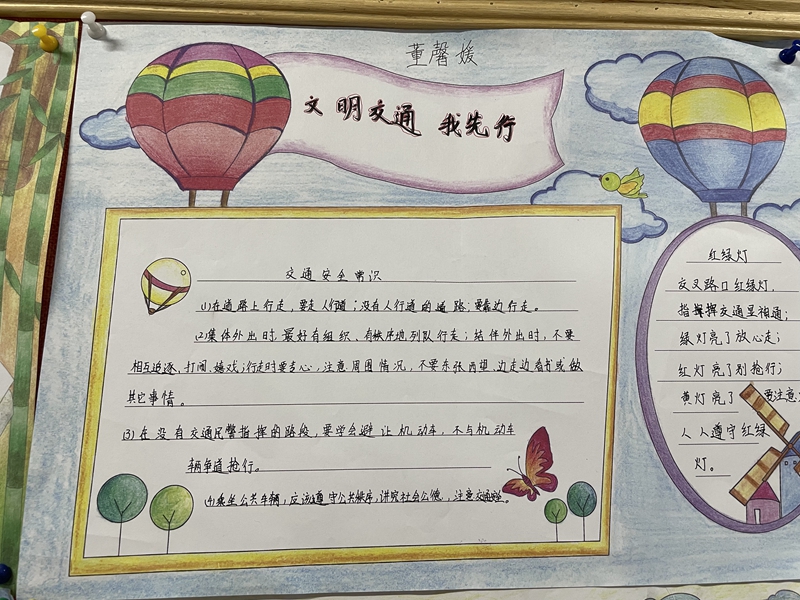 董馨媛
文明交通 我先行
交通安全常识
(1)在道路上行走,要走人行道;没有人行道的道路,要靠边行走。
(2)集体外出时,最好有组织、有秩序地列队行走;结伴外出时,不要
相互追逐、打闹、嬉戏;行走时要专心,注意周围情况,不要东张西望、边走边看书或做
其它事情。
(3)在没有交通民警指挥的路段,要学会避让机动车,不与机动车
辆争道抢行。
(4)乘坐公共车辆,应该遵守公共秩序,讲究社会公德,注意交通
红绿灯
交叉路口红绿灯,
指挥交通显神通;
绿灯亮了放心走;
红灯亮了别抢行;
黄灯亮了要注意
人人遵守红绿
灯。